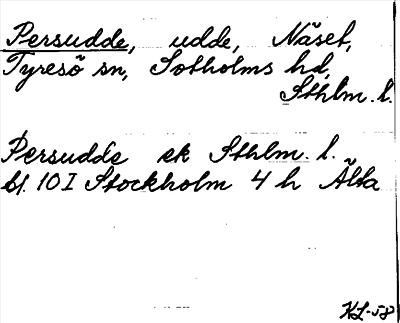 Persudde, udde, Näset,
Tyresö sn, Sotholms hd,
Sthlm. l.
Persudde ek Sthlm. l.
bl. 10 I Stockholm 4 h Älta
KL-58